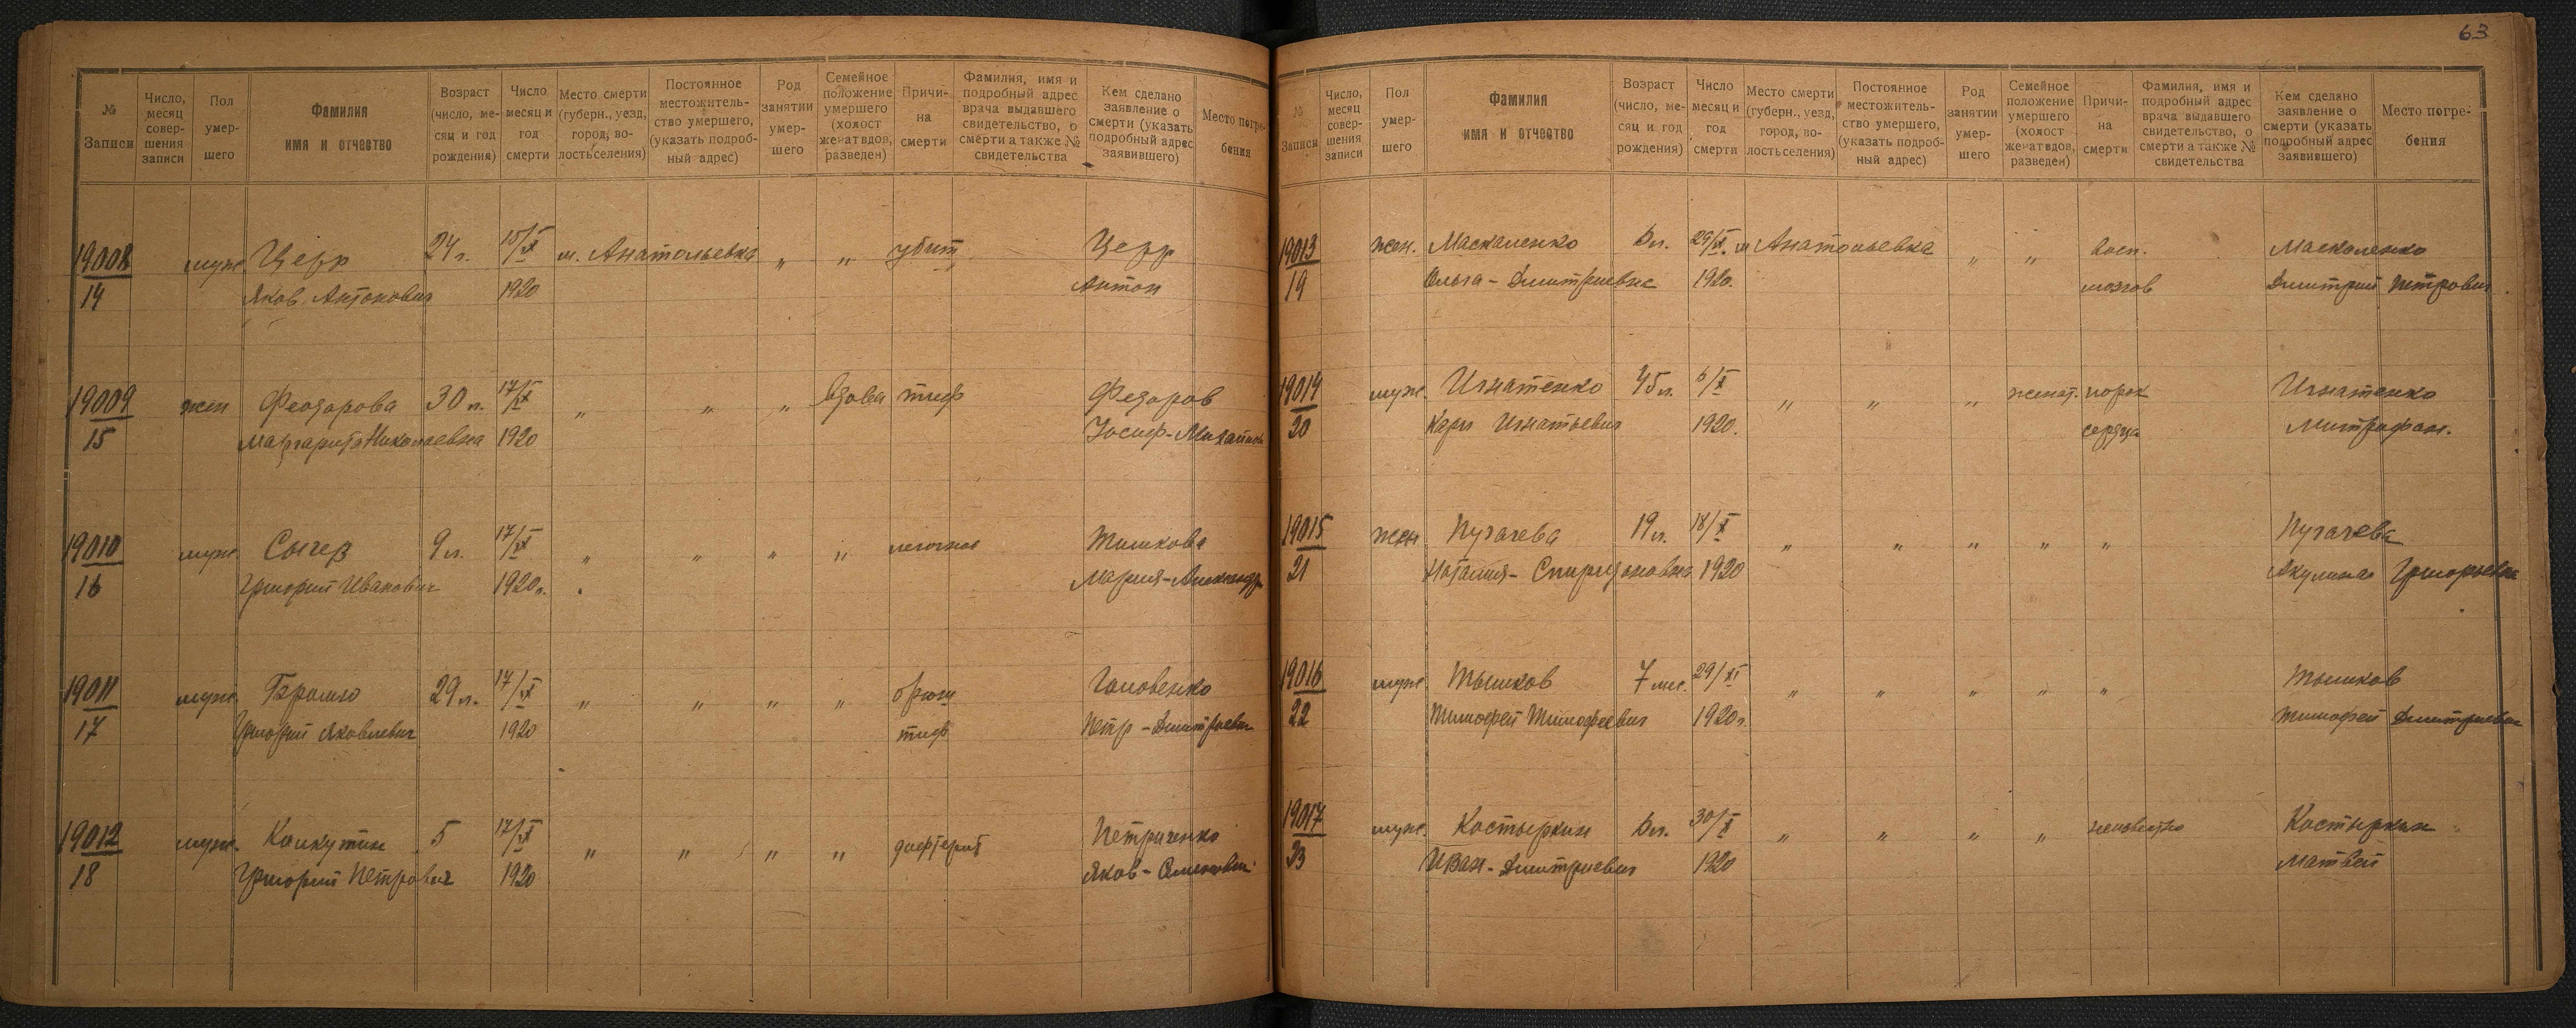 63
№ Записи
Число, месяц совер- шения записи
Пол умер- шего
Фамилия имя и отчество
Возраст (число, ме- сяц и год рождения)
Число месяц и год смерти
Место смерти (губерн., уезд, город, во- лость селения)
Постоянное местожитель- ство умершего, (указать подроб- ный адрес)
Род занятии умер- шего
Семейное положение умершего (холост женат вдов, разведен)
Причи- на смерти
Фамилия, имя и подробный адрес врача выдавшего свидетельство, о смерти а также № свидетельства
Кем сделано заявление о смерти (указать подробный адрес заявившего)
Место погре- бения
19008 муж Церр 24 г. 15/X м. Анатольевка „ „ убит Церр
14 Яков Антонович 1920 Антон
19009 жен Феодорова 30 л. 17/X „ „ „ вдова тиф Федоров
15 Маргарита Николаевна 1920 Иосиф-
19010 муж Сычев 9 л. 17/X „ „ „ „ Тишкова
16 Григорий Иванович 1920 г. Мария-Александр
19011 муж 29 л. 17/X „ „ „ „ брюш Головенко
17 Григорий Яковлевич 1920 тиф Петр-Дмитриевич
19012 муж. Колкутин 5 17/X „ „ „ „ дифтерит Петриченко
18 Григорий Петрович 1920 Яков-
№ Записи
Число, месяц совер- шения записи
Пол умер- шего
Фамилия имя и отчество
Возраст (число, ме- сяц и год рождения)
Число месяц и год смерти
Место смерти (губерн., уезд, город, во- лость селения)
Постоянное местожитель- ство умершего, (указать подроб- ный адрес)
Род занятии умер- шего
Семейное положение умершего (холост женат вдов, разведен)
Причи- на смерти
Фамилия, имя и подробный адрес врача выдавшего свидетельство, о смерти а также № свидетельства
Кем сделано заявление о смерти (указать подробный адрес заявившего)
Место погре- бения
19013 жен. Маскаленко 29/X м Анатольевка „ „ восп. Маскаленко
19 Ольга-Дмитриевна 1920. мозгов Дмитрий Петрович
19014 муж. Игнатенко 45 л. 6/X „ „ „ женат. порок Игнатенко
20 Карп Игнатьевич 1920. сердца Митрофан.
19015 жен Пугачева 19 л. 18/X „ „ „ „ „ Пугачева
21 Наталия-Спиридоновна 1920 Акулина Григорьевна
19016 муж Тышков 7 мес. 29/XI „ „ „ „ „ Тышков
22 Тимофей Тимофеевич 1920 г. Тимофей Дмитриевич
19017 муж. Костыркин 30/X „ „ „ „ неизвестно Костыркин
23 Иван-Дмитриевич 1920 Матвей